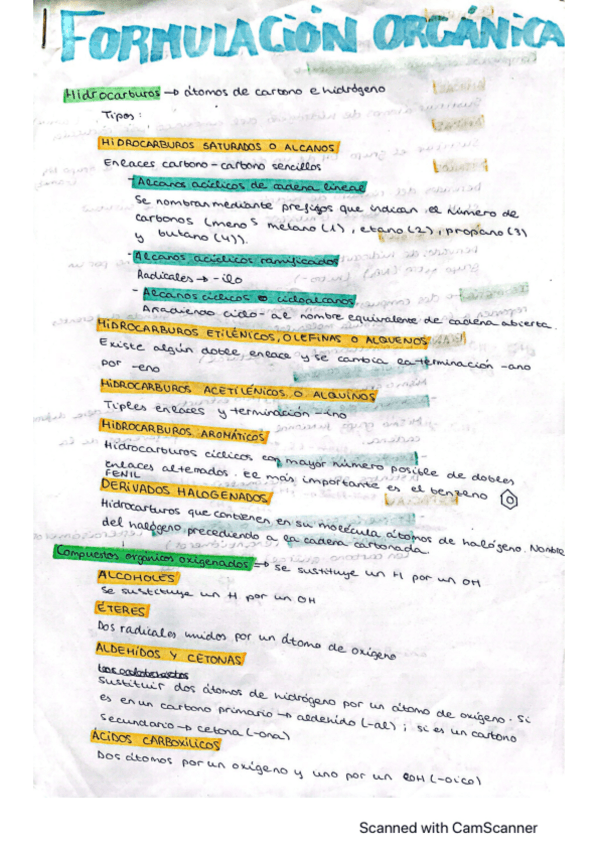 FORMULACIÓN ORGÁNICA
Hidrocarburos → átomos de carbono e hidrógeno
Tipos:
HIDROCARBUROS SATURADOS O ALCANOS
Enlaces carbono-carbono sencillos
- Alcanos acíclicos de cadena lineal
Se nombran mediante prefijos que indican el número de
carbonos (menos metano (1), etano (2), propano (3)
y butano (4)).
- Alcanos acíclicos ramificados
Radicales → -ilo
- Alcanos cíclicos o cicloalcanos
Añadiendo ciclo- al nombre equivalente de cadena abierta.
HIDROCARBUROS ETILÉNICOS, OLEFINAS O ALQUENOS
Existe algún doble enlace y se cambia la terminación -ano
por -eno
HIDROCARBUROS ACETILÉNICOS O ALQUINOS
Tiples enlaces y terminación -ino
HIDROCARBUROS AROMÁTICOS
Hidrocarburos cíclicos con mayor número posible de dobles
enlaces alternados. El más importante es el benzeno
FENIL
DERIVADOS HALOGENADOS
Hidrocarburos que contienen en su molécula átomos de halógeno. Nombre
del halógeno precediendo a la cadena carbonada.
Compuestos orgánicos oxigenados → se sustituye un H por un OH
ALCOHOLES
Se sustituye un H por un OH
ÉTERES
Dos radicales unidos por un átomo de oxígeno
ALDEHÍDOS Y CETONAS
Sustituir dos átomos de hidrógeno por un átomo de oxígeno. Si
es en un carbono primario → aldehído (-al); si es un carbono
secundario → cetona (-ona)
ÁCIDOS CARBOXÍLICOS
Dos átomos por un oxígeno y uno por un OH (-oico)
Scanned with CamScanner